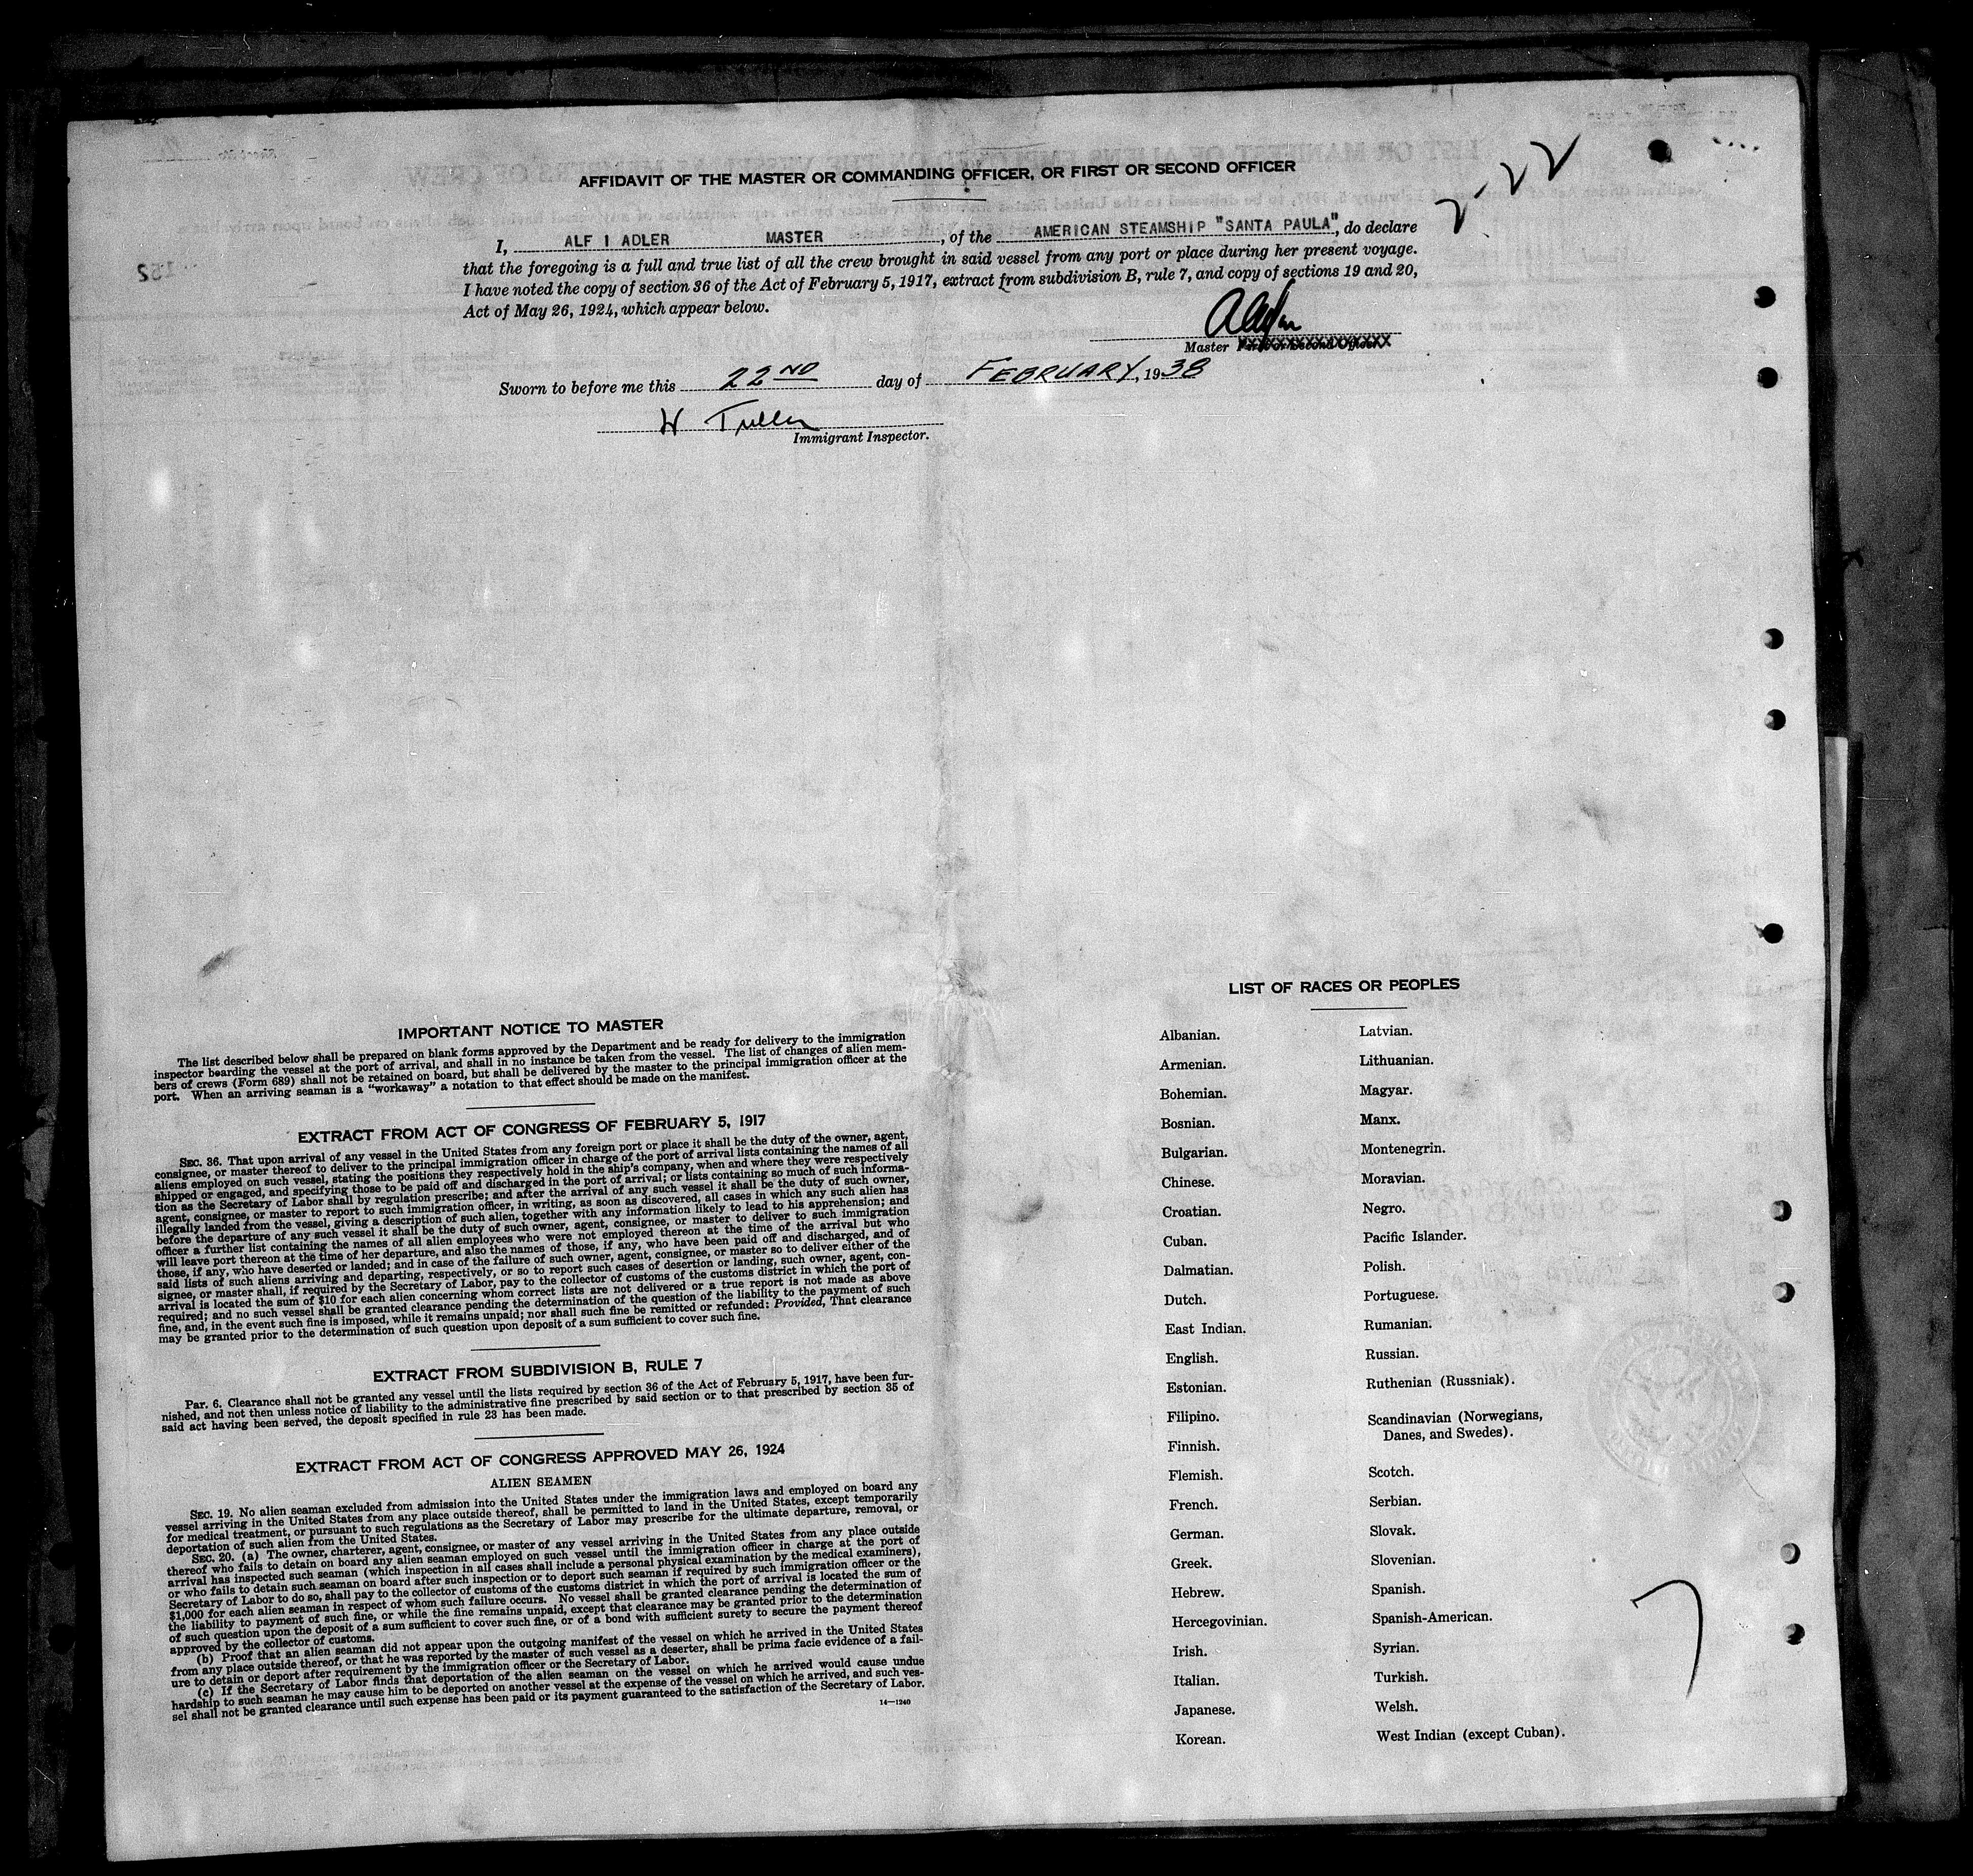 AFFIDAVIT OF THE MASTER OR COMMANDING OFFICER, OR FIRST OR SECOND OFFICER
I, ALF I ADLER MASTER, of the AMERICAN STEAMSHIP "SANTA PAULA", do declare
that the foregoing is a full and true list of all the crew brought in said vessel from any port or place during her present voyage.
I have noted the copy of section 36 of the Act of February 5, 1917, extract from subdivision B, rule 7, and copy of sections 19 and 20,
Act of May 26, 1924, which appear below.
Master
Sworn to before me this 22ND day of FEBRUARY, 1938
Immigrant Inspector.
IMPORTANT NOTICE TO MASTER
The list described below shall be prepared on blank forms approved by the Department and be ready for delivery to the immigration
inspector boarding the vessel at the port of arrival, and shall in no instance be taken from the vessel. The list of changes of alien mem-
bers of crews (Form 689) shall not be retained on board, but shall be delivered by the master to the principal immigration officer at the
port. When an arriving seaman is a "workaway" a notation to that effect should be made on the manifest.
EXTRACT FROM ACT OF CONGRESS OF FEBRUARY 5, 1917
SEC. 36. That upon arrival of any vessel in the United States from any foreign port or place it shall be the duty of the owner, agent,
consignee, or master thereof to deliver to the principal immigration officer in charge of the port of arrival lists containing the names of all
aliens employed on such vessel, stating the positions they respectively hold in the ship's company, when and where they were respectively
shipped or engaged, and specifying those to be paid off and discharged in the port of arrival; or lists containing so much of such informa-
tion as the Secretary of Labor shall by regulation prescribe; and after the arrival of any such vessel it shall be the duty of such owner,
agent, consignee, or master to report to such immigration officer, in writing, as soon as discovered, all cases in which any such alien has
illegally landed from the vessel, giving a description of such alien, together with any information likely to lead to his apprehension; and
before the departure of any such vessel it shall be the duty of such owner, agent, consignee, or master to deliver to such immigration
officer a further list containing the names of all alien employees who were not employed thereon at the time of the arrival but who
will leave port thereon at the time of her departure, and also the names of those, if any, who have been paid off and discharged, and of
those, if any, who have deserted or landed; and in case of the failure of such owner, agent, consignee, or master so to deliver either of the
said lists of such aliens arriving and departing, respectively, or so to report such cases of desertion or landing, such owner, agent, con-
signee, or master shall, if required by the Secretary of Labor, pay to the collector of customs of the customs district in which the port of
arrival is located the sum of $10 for each alien concerning whom correct lists are not delivered or a true report is not made as above
required; and no such vessel shall be granted clearance pending the determination of the question of the liability to the payment of such
fine, and, in the event such fine is imposed, while it remains unpaid; nor shall such fine be remitted or refunded: Provided, That clearance
may be granted prior to the determination of such question upon deposit of a sum sufficient to cover such fine.
EXTRACT FROM SUBDIVISION B, RULE 7
Par. 6. Clearance shall not be granted any vessel until the lists required by section 36 of the Act of February 5, 1917, have been fur-
nished, and not then unless notice of liability to the administrative fine prescribed by said section or to that prescribed by section 35 of
said act having been served, the deposit specified in rule 23 has been made.
EXTRACT FROM ACT OF CONGRESS APPROVED MAY 26, 1924
ALIEN SEAMEN
SEC. 19. No alien seaman excluded from admission into the United States under the immigration laws and employed on board any
vessel arriving in the United States from any place outside thereof, shall be permitted to land in the United States, except temporarily
for medical treatment, or pursuant to such regulations as the Secretary of Labor may prescribe for the ultimate departure, removal, or
deportation of such alien from the United States.
SEC. 20. (a) The owner, charterer, agent, consignee, or master of any vessel arriving in the United States from any place outside
thereof who fails to detain on board any alien seaman employed on such vessel until the immigration officer in charge at the port of
arrival has inspected such seaman (which inspection in all cases shall include a personal physical examination by the medical examiners),
or who fails to detain such seaman on board after such inspection or to deport such seaman if required by such immigration officer or the
Secretary of Labor to do so, shall pay to the collector of customs of the customs district in which the port of arrival is located the sum of
$1,000 for each alien seaman in respect of whom such failure occurs. No vessel shall be granted clearance pending the determination of
the liability to payment of such fine, or while the fine remains unpaid, except that clearance may be granted prior to the determination
of such question upon the deposit of a sum sufficient to cover such fine, or of a bond with sufficient surety to secure the payment thereof
approved by the collector of customs.
(b) Proof that an alien seaman did not appear upon the outgoing manifest of the vessel on which he arrived in the United States
from any place outside thereof, or that he was reported by the master of such vessel as a deserter, shall be prima facie evidence of a fail-
ure to detain or deport after requirement by the immigration officer or the Secretary of Labor.
(c) If the Secretary of Labor finds that deportation of the alien seaman on the vessel on which he arrived would cause undue
hardship to such seaman he may cause him to be deported on another vessel at the expense of the vessel on which he arrived, and such ves-
sel shall not be granted clearance until such expense has been paid or its payment guaranteed to the satisfaction of the Secretary of Labor.
14—1240
LIST OF RACES OR PEOPLES
Albanian.
Armenian.
Bohemian.
Bosnian.
Bulgarian.
Chinese.
Croatian.
Cuban.
Dalmatian.
Dutch.
East Indian.
English.
Estonian.
Filipino.
Finnish.
Flemish.
French.
German.
Greek.
Hebrew.
Hercegovinian.
Irish.
Italian.
Japanese.
Korean.
Latvian.
Lithuanian.
Magyar.
Manx.
Montenegrin.
Moravian.
Negro.
Pacific Islander.
Polish.
Portuguese.
Rumanian.
Russian.
Ruthenian (Russniak).
Scandinavian (Norwegians,
Danes, and Swedes).
Scotch.
Serbian.
Slovak.
Slovenian.
Spanish.
Spanish-American.
Syrian.
Turkish.
Welsh.
West Indian (except Cuban).